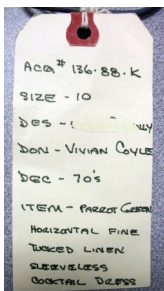 ACQ# 136.88.K
SIZE - 10
DES -
DON - VIVIAN COYLE
DEC - 70's
ITEM - PARROT GREEN
HORIZONTAL FINE
TUCKED LINEN
SLEEVELESS
COCKTAIL DRESS